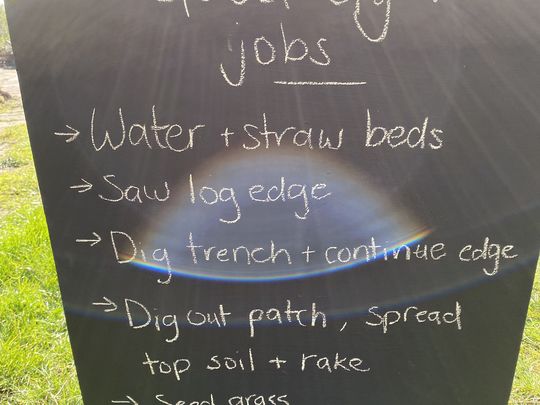 jobs
→ Water + straw beds
→ Saw log edge
→ Dig trench + continue edge
→ Dig out patch, spread
top soil + rake
→ Seed grass